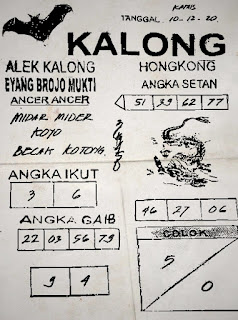 KAMIS
TANGGAL 10-12-20
KALONG
ALEK KALONG
EYANG BROJO MUKTI
ANCER ANCER
MIDAR MIDER
KOYO
BECAK KOTONG
ANGKA IKUT
3 6
ANGKA GAIB
22 03 56 79
9 4
HONGKONG
ANGKA SETAN
51 39 62 77
46 27 06
COLOK
5
0